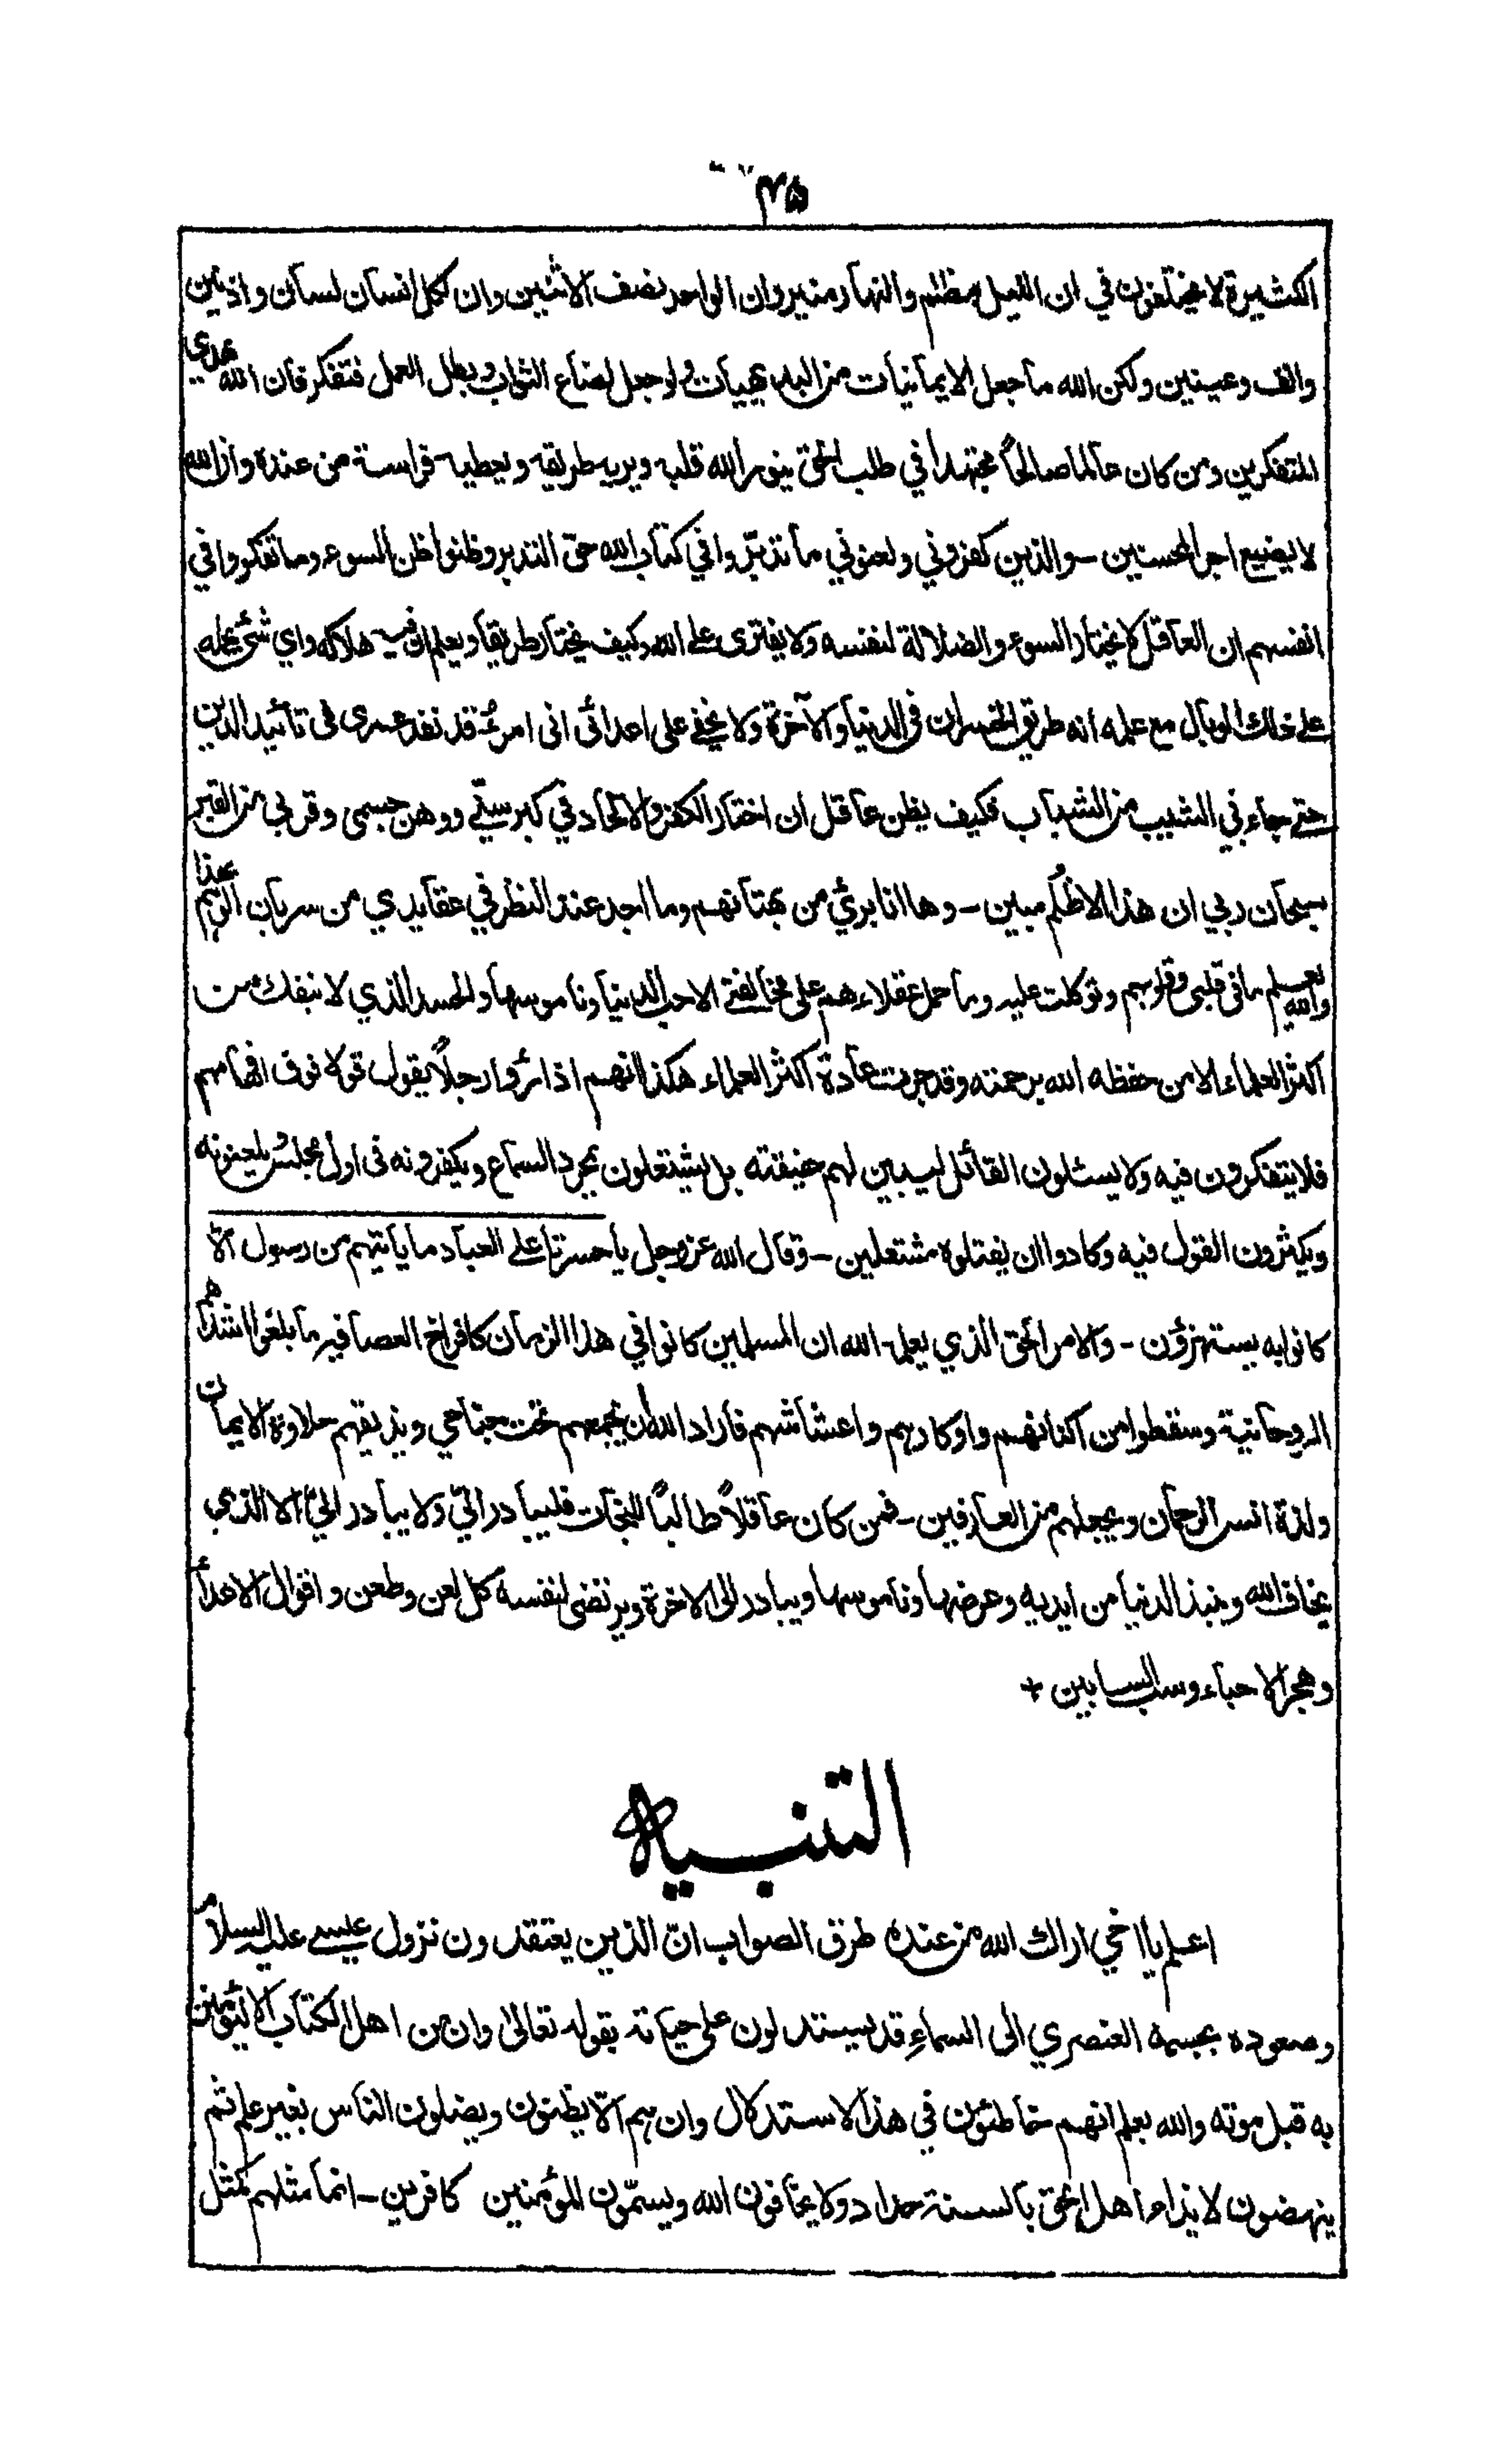 ٤٥
الكثيرة لا يختلفون في ان الليل مظلم والنهار منير وان الواحد نصف الاثنين وان لكل انسان لسان واذنين
وانف وعينين ولكن الله ما جعل الايمانيات من البديهيات ولو جعل لضاع الثواب وبطل العمل فتفكر فان الله يهدي
المتفكرين ومن كان عالما صالحًا مجتهدا في طلب الحق ينور الله قلبه ويريه طريقه ويعطيه فراسة من عنده وان الله
لا يضيع اجر المحسنين - والذين كفروني ولعنوني ما تدبّروا في كتاب الله حق التدبر وظنوا ظن السوء وما تفكروا في
انفسهم ان العاقل لا يختار السوء والضلالة لنفسه ولا يفترى على الله وكيف يختار طريقا ويعلم ان فيه هلاكه واي شئ يحمله
على ذلك الوبال مع علمه انه طريق الخسران فى الدنيا والآخرة ولا يخفى على اعدائى انى امرءٌ قد نفد عمرى فى تائيد الدين
حتى جاءني الشيب من الشباب فكيف يظن عاقل ان اختار الكفر والالحاد في كبر سنّي ووهن جسمى وقربي من القبر
سبحان ربي ان هذا الا ظلم مبين - وها انا بريٌ من بهتانهم وما اجد عند النظر في عقايدي من سريان الوهم بهذا
والله يعلم ما فى قلبي وقلوبهم وتوكلت عليه وما حمل عقلاءهم على مخالفتي الا حب الدنيا وناموسها والحسد الذي لا ينفك من
اكثر العلماء الا من حفظه الله برحمته وقد جرت عادة اكثر العلماء هكذا انهم اذا رأوا رجلًا يقول قولا فوق افهامهم
فلا يتفكرون فيه ولا يسئلون القائل ليبين لهم حقيقته بل يشتعلون بمجرد السماع ويكفرونه فى اول مجلس ويلعنونه
ويكثرون القول فيه وكادوا ان يقتلوه مشتعلين - وقال الله عزوجل يا حسرتا على العباد ما يأتيهم من رسول الّا
كانوا به يستهزؤن - والامر الحق الذي يعلمه الله ان المسلمين كانوا في هذا الزمان كافراخ العصافير ما بلغوا اشدهم
الروحانية وسقطوا من اكنانهم واوكارهم واعشاشهم فاراد الله ان يجمعهم تحت جناحي ويذيقهم حلاوة الايمان
ولذة انس الرحمان ويجعلهم من العارفين - فمن كان عاقلًا طالبًا للنجات فليبادر اليّ ولا يبادر اليّ الا الذي
يخاف الله وينبذ الدنيا من ايديه وعرضها وناموسها ويبادر الى الاخرة ويرتضى لنفسه كل لعن وطعن واقوال الاعداء
وهجر الاحباء وسب السابين +
التنبيه
اعلم يا اخي اراك الله من عنده طرق الصواب انّ الذين يعتقدون نزول عيسى عليه السلام
وصعوده بجسمه العنصري الى السماءِ قد يستدلون على حياته بقوله تعالىٰ وان من اهل الكتاب الا ليؤمنن
به قبل موته والله يعلم انهم خاطئون في هذا الاستدلال وان هم الّا يظنون ويضلون الناس بغير علم ثم
ينهضون لايذاء اهل الحق بالسنة حداد ولا يخافون الله ويسمّون المؤمنين كافرين - انما مثلهم كمثل